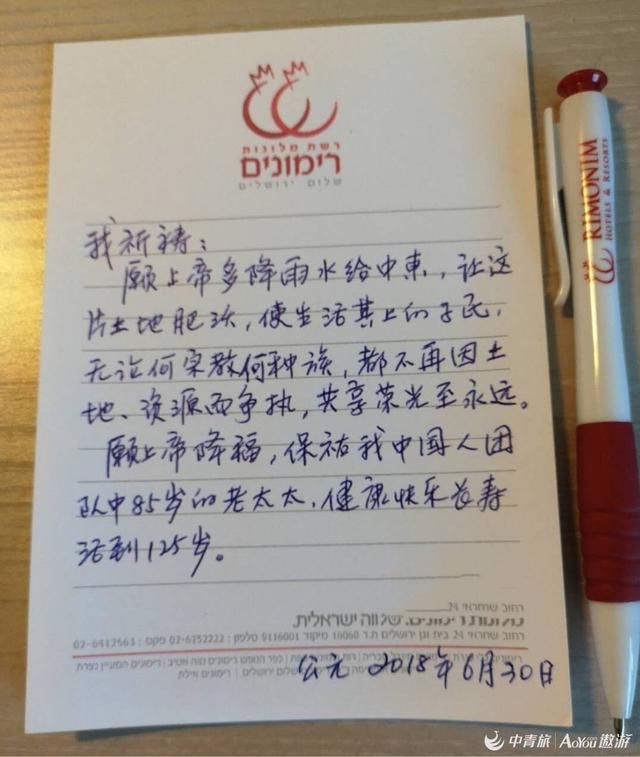 רשת מלונות
רימונים
שלום ירושלים
我祈祷：
愿上帝多降雨水给中東，让这
片土地肥沃，使生活其上的子民，
无论何宗教何种族，都不再因土
地、资源而争执，共享荣光至永远。
愿上帝降福，保祐我中国人团
队中85岁的老太太，健康快乐长寿
活到125岁。
רחוב שחראי 24
מלונות רימונים. שלווה ישראלית.
רחוב שחראי 24 בית וגן ירושלים ת.ד 16060 מיקוד 9116001 טלפון: 02-6752222 פקס: 02-6412563
公元 2018年6月30日
RIMONIM
HOTELS & RESORTS
中青旅 AoYou 遨游